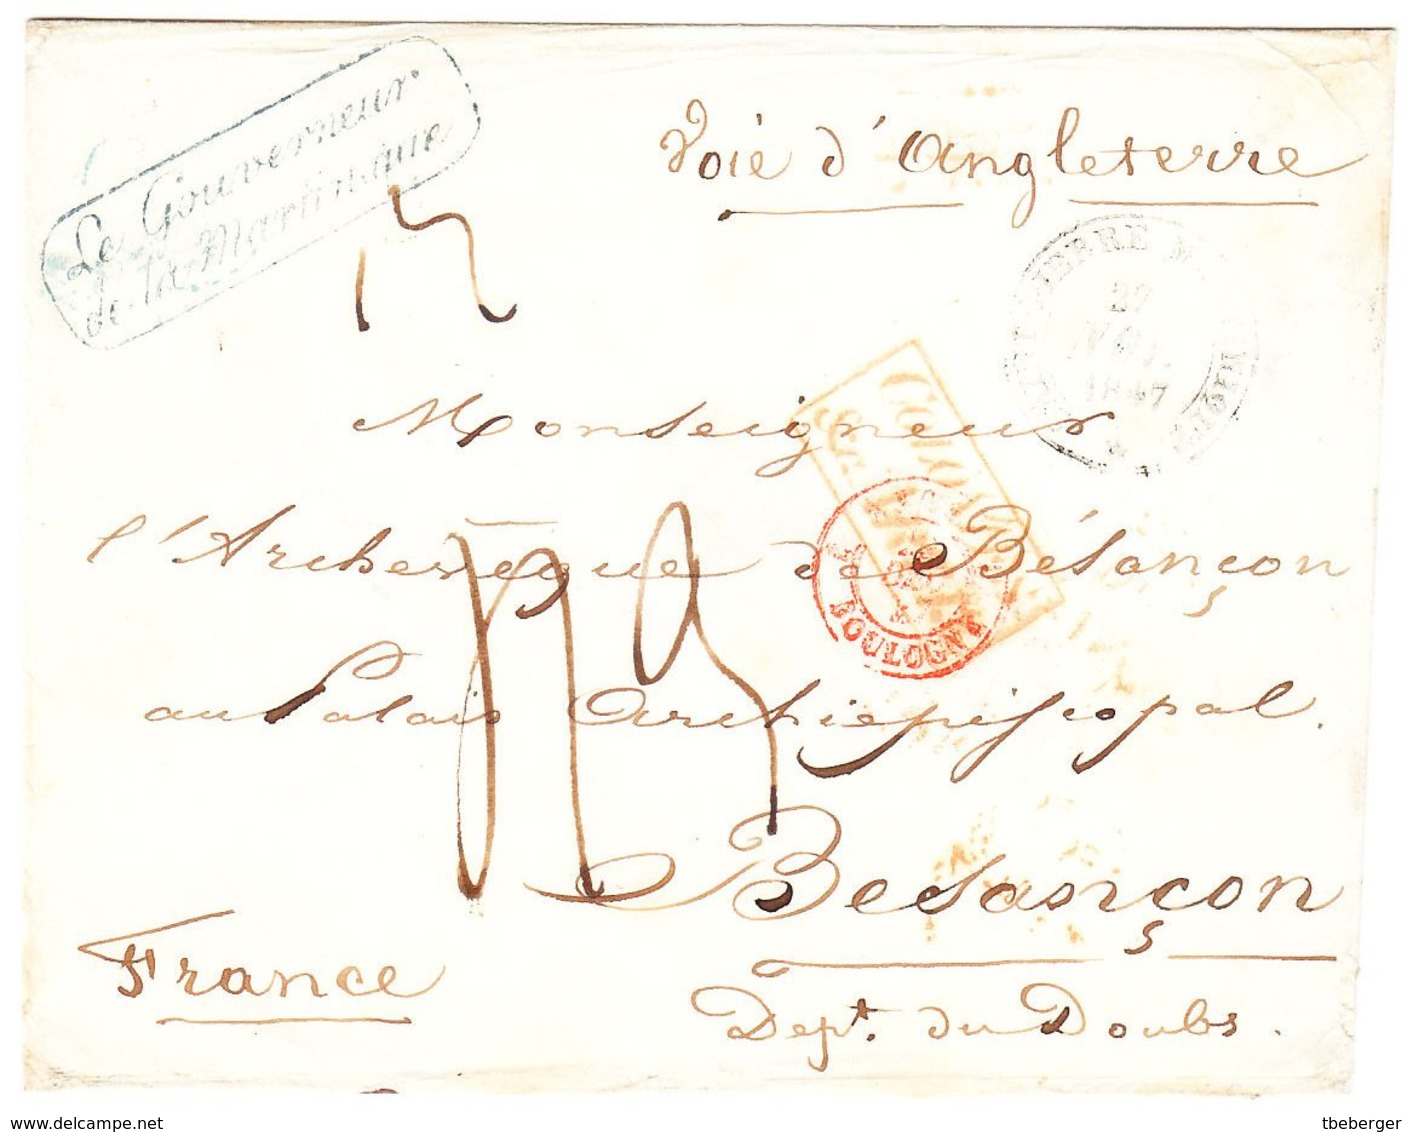 Le Gouverneur
de la Martinique
Voie d'Angleterre
ST PIERRE
27
NOV.
1847
Monseigneur
l'Archevêque de Bésançon
au Palais Archiépiscopal.
Besançon
Dept. du Doubs.
France
BOULOGNE
www.delcampe.net
tbeberger